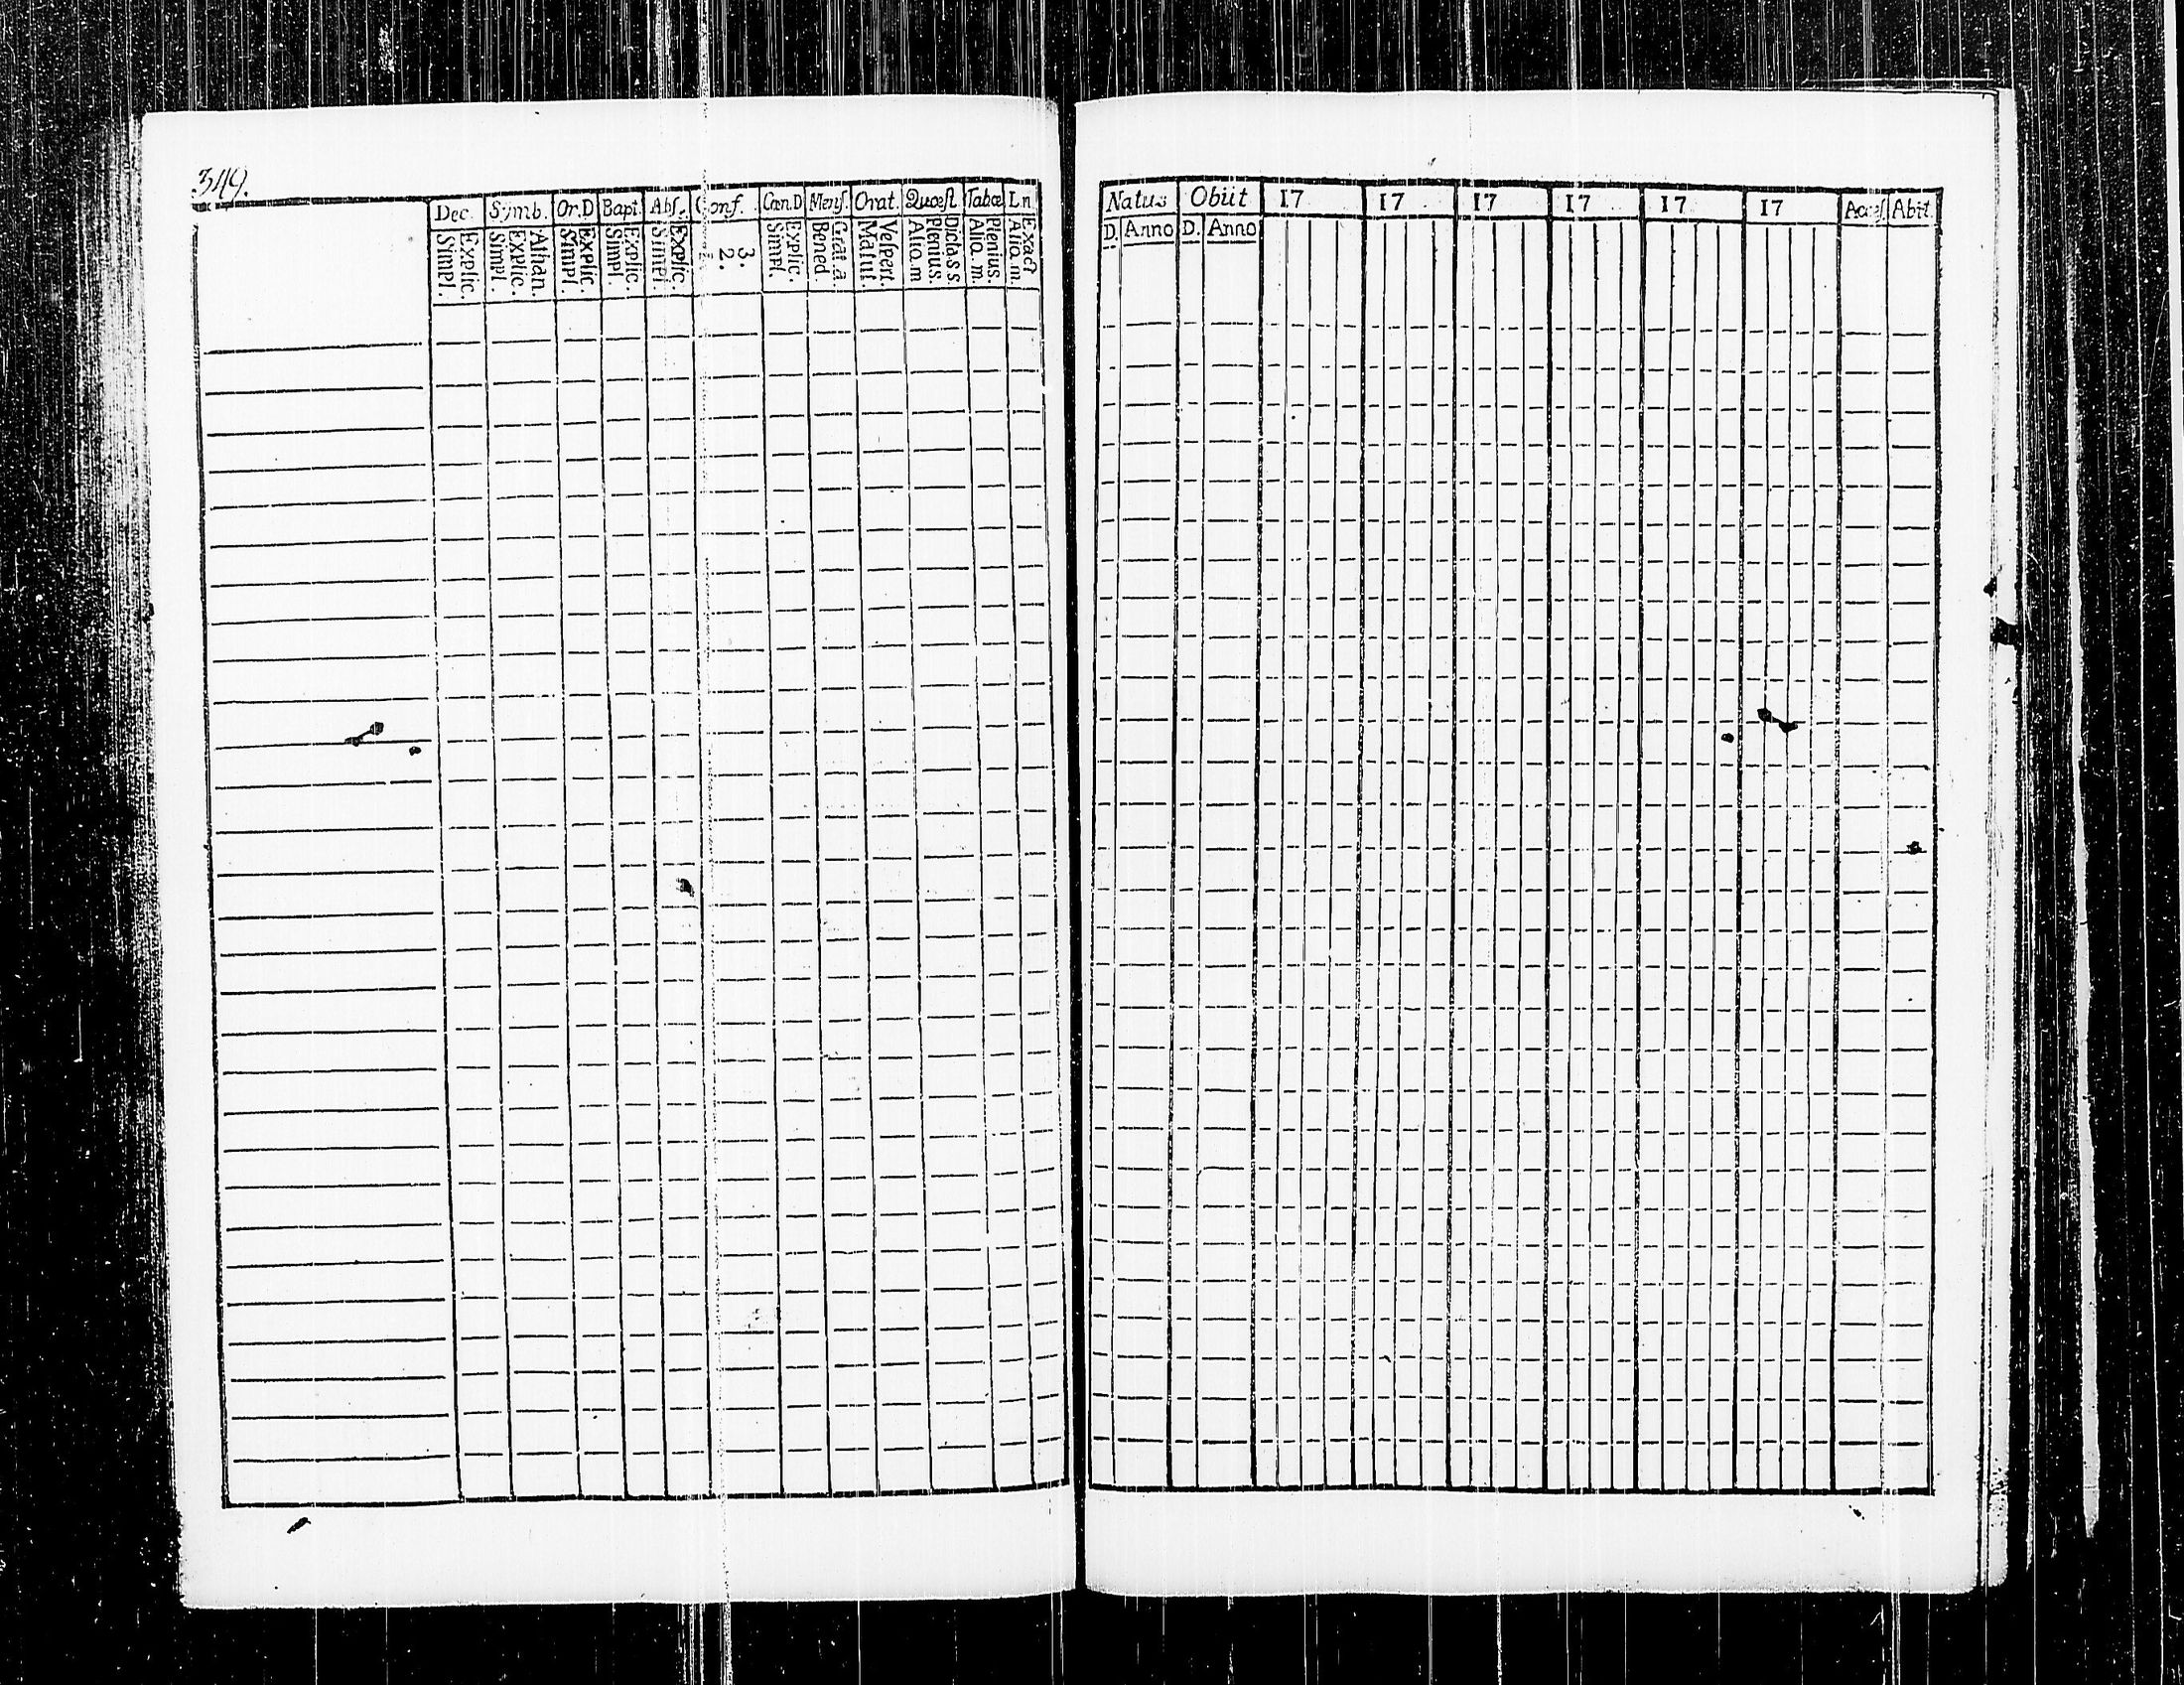 349.
Dec. Symb. Or.D Bapt. Abſ. Conf. Cœn.D Menſ. Orat. Quœſt Tabœ Ln
Simpl. Explic. Simpl. Explic. Athan. Simpl. Explic. Simpl. Explic. Simpl. Explic. 2. 3. Simpl. Explic. Bened. Grat. a. Matut. Veſpert. Aliq. m Plenius. Dicta s s. Aliq. m. Plenius. Aliq. m. Exact
Natus Obiit 17 17 17 17 17 17 Acceſ. Abit.
D. Anno D. Anno